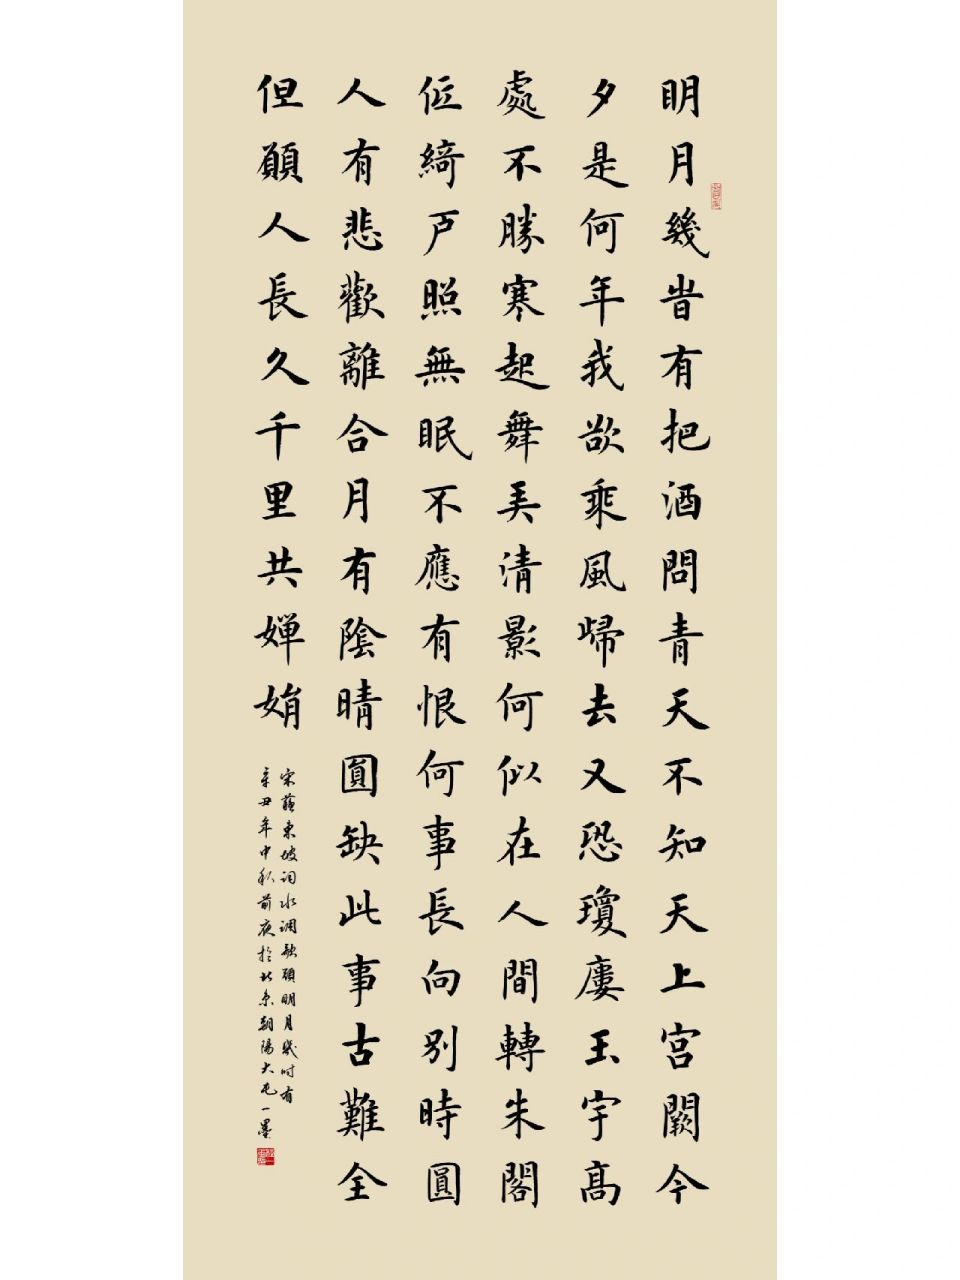 明月幾旹有把酒問青天不知天上宮闕今
夕是何年我欲乘風歸去又恐瓊廔玉宇高
處不勝寒起舞弄清影何似在人間轉朱閣
低綺戶照無眠不應有恨何事長向別時圓
人有悲歡離合月有陰晴圓缺此事古難全
但願人長久千里共嬋娟
宋蘇東坡詞水調歌頭明月幾时有
辛丑年中秋前夜於北京朝陽大屯一墨